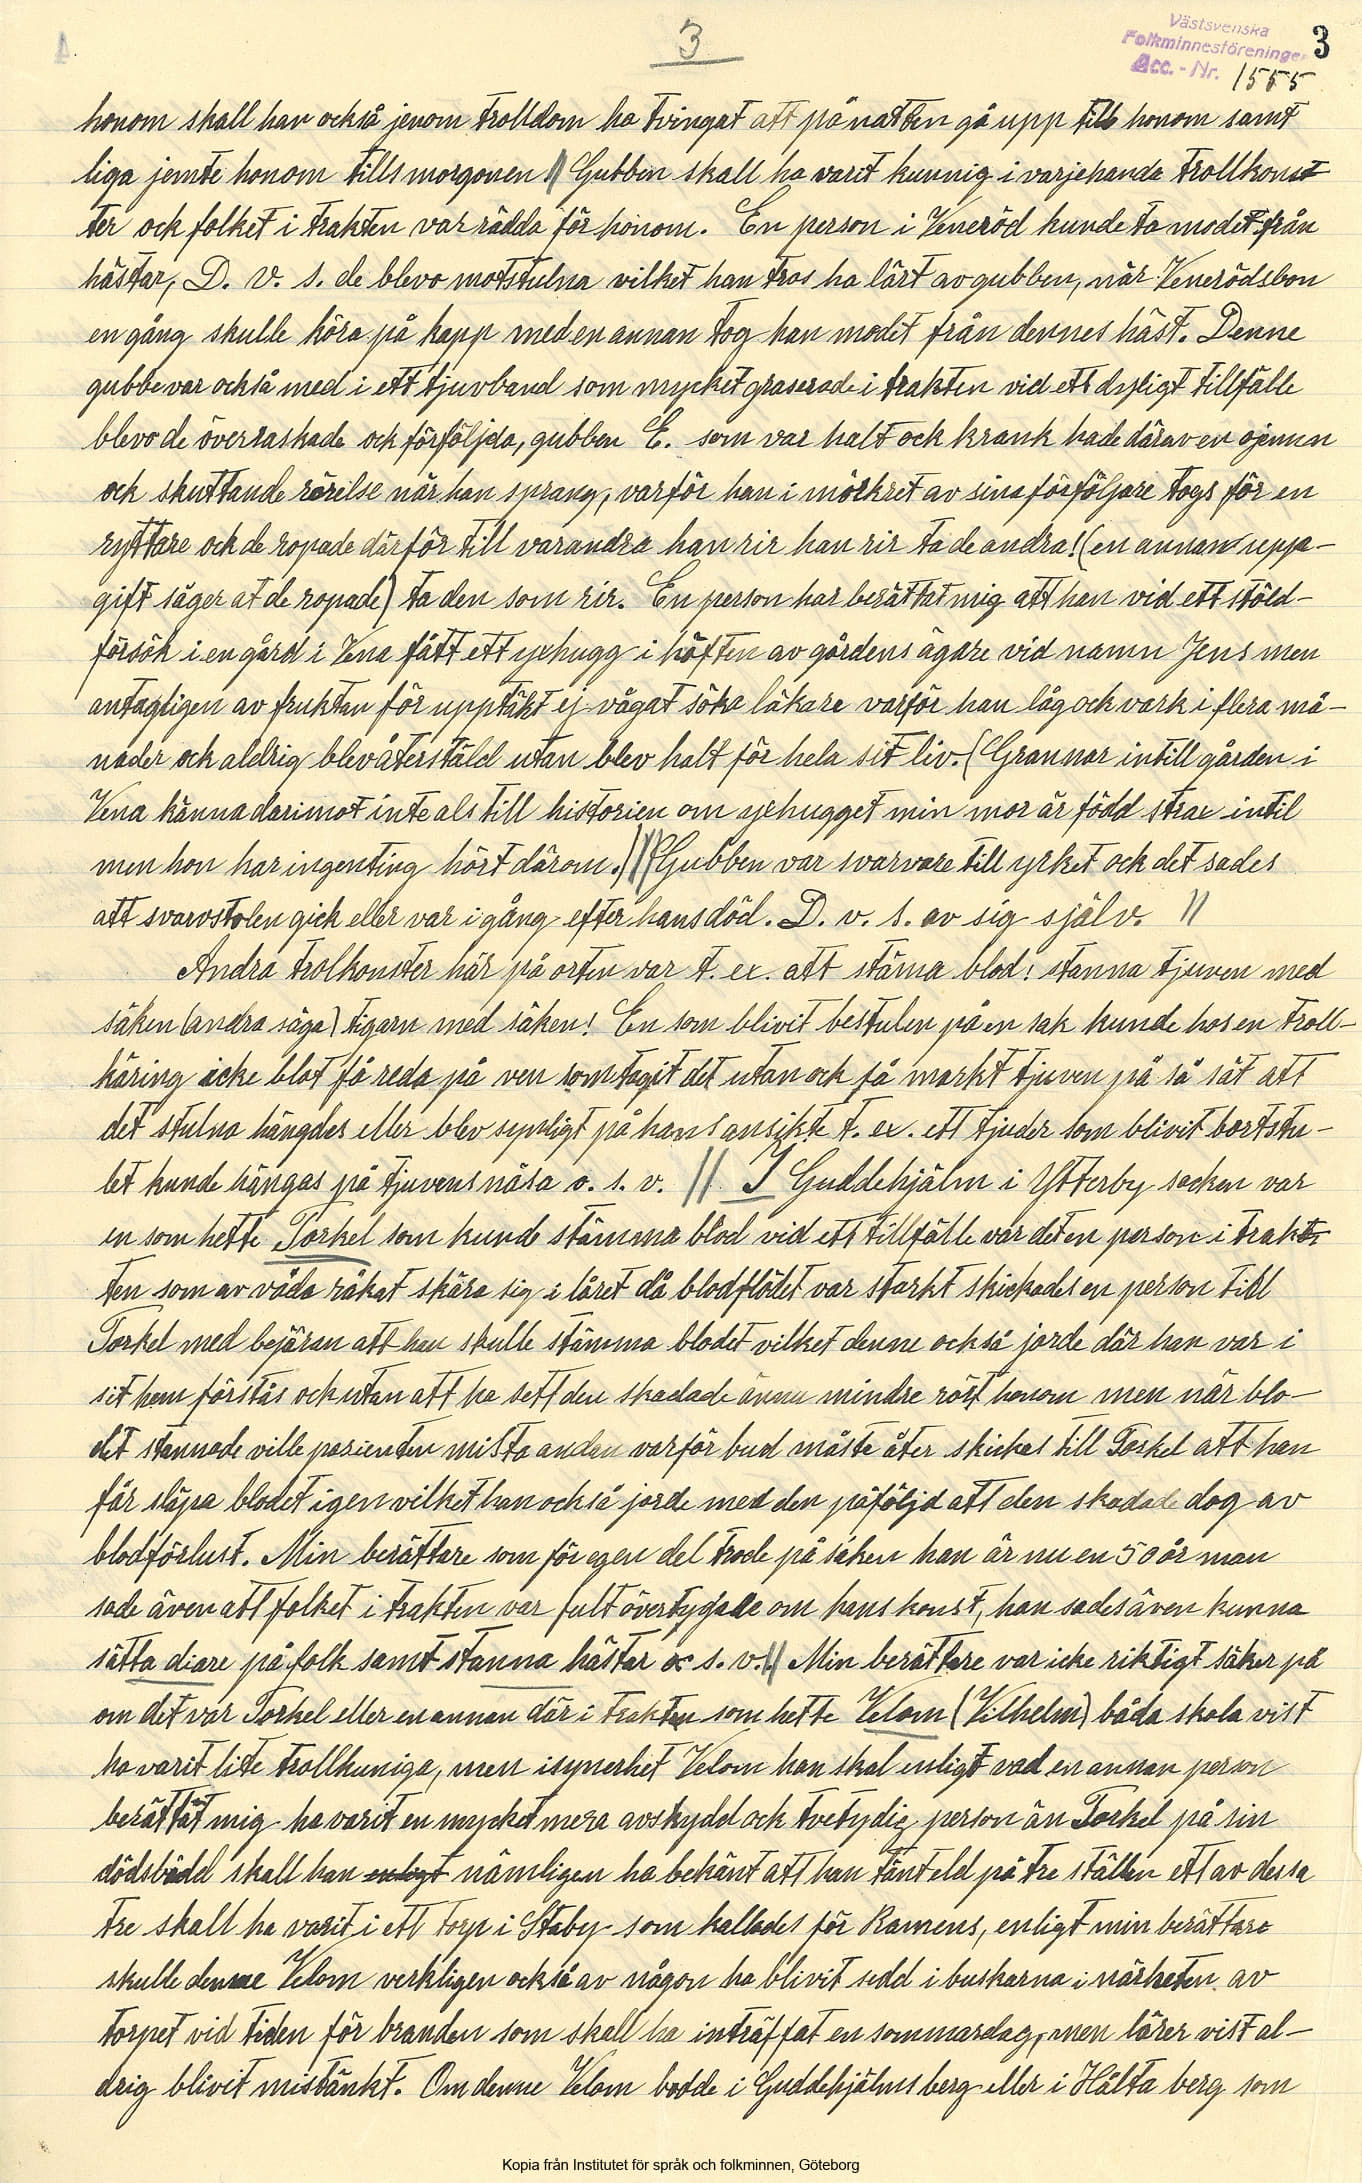 3
Västsvenska
Folkminnesföreningen
Acc. - Nr. 1555
3
honom skall han också jenom trolldom ha tvingat att på natten gå upp till honom samt
liga jemte honom tills morgonen // Gubben skall ha varit kunnig i varjehanda trollkons
ter ock folket i trakten var rädda för honom. En person i Veneröd kunde ta modet från
hästar, D. v. s. de blevo motstulna vilket han tros ha lärt av gubben, när Venerödsbon
en gång skulle köra på kapp med en annan tog han modet från dennes häst. Denne
gubbe var också med i ett tjuvband som mycket graserade i trakten vid ett dyligt tillfälle
blevo de överraskade ock förföljda, gubben E. som var halt ock krank hade därav en ojemn
ock skuttande rörelse när han sprang, varför han i mörkret av sina förföljare togs för en
ryttare ock de ropade därför till varandra han rir han rir ta de andra! (en annan uppa-
gift säger at de ropade) ta den som rir. En person har berättat mig att han vid ett stöld-
försök i en gård i Vena fått ett yxhugg i höften av gårdens ägare vid namn Jens men
antagligen av fruktan för upptäkt ej vågat söka läkare varför han låg ock vark i flera må-
nader ock aldrig blev återstäld utan blev halt för hela sit liv. (Grannar intill gården i
Vena känna darimot inte als till historien om yxhugget min mor är född strax intil
men hon har ingenting hört därom.) // Gubben var svarvare till yrket ock det sades
att svarvstolen gick eller var i gång efter hans död. D. v. s. av sig själv. //
Andra trolkonster här på orten var t. ex. att stäma blod! stanna tjuven med
säken (andra säga) tigarn med säken! En som blivit bestulen på en sak kunde hos en troll-
käring icke blot få reda på ven som tagit det utan ock få markt tjuven på så sät att
det stulna hängdes eller blev synligt på hans ansikte t. ex. ett tjuder som blivit bortstu-
let kunde hängas på tjuvens näsa o. s. v. // I Guddehjälm i Ytterby socken var
en som hette Torkel som kunde stämma blod vid ett tillfälle var det en person i trak
ten som av våda råkat skära sig i låret då blodflödet var starkt skickades en person till
Torkel med bejäran att han skulle stämma blodet vilket denne också jorde där han var i
sit hem förstås ock utan att ha sett den skadade ännu mindre rört honom men när blo-
det stannade ville pasienten mista andan varför bud måste åter skickas till Torkel att han
får släpa blodet igen vilket han också jorde med den påföljd att den skadade dog av
blodförlust. Min berättare som för egen del trode på saken han är nu en 50 år man
sade även att folket i trakten var fult övertygade om hans konst, han sades även kunna
sätta diare på folk samt stanna hästar o. s. v. // Min berättare var icke riktigt säker på
om det var Torkel eller en annan där i trakten som hette Velom (Vilhelm) båda skola vist
ha varit lite trollkuniga, men i synerhet Velom han skal enligt vad en annan person
berättat mig ha varit en mycket mera avskydd ock tvetydig person än Torkel på sin
dödsbädd skall han enligt nämligen ha bekänt att han tänt eld på tre ställen ett av dessa
tre skall ha varit i ett torp i Staby som kallades för Ramens, enligt min berättare
skulle denne Velom verkligen också av någon ha blivit sedd i buskarna i närheten av
torpet vid tiden för branden som skall ha inträffat en sommardag, men lärer vist al-
drig blivit mistänkt. Om denne Velom bodde i Guddehjälms berg eller i Hålta berg som
Kopia från Institutet för språk och folkminnen, Göteborg